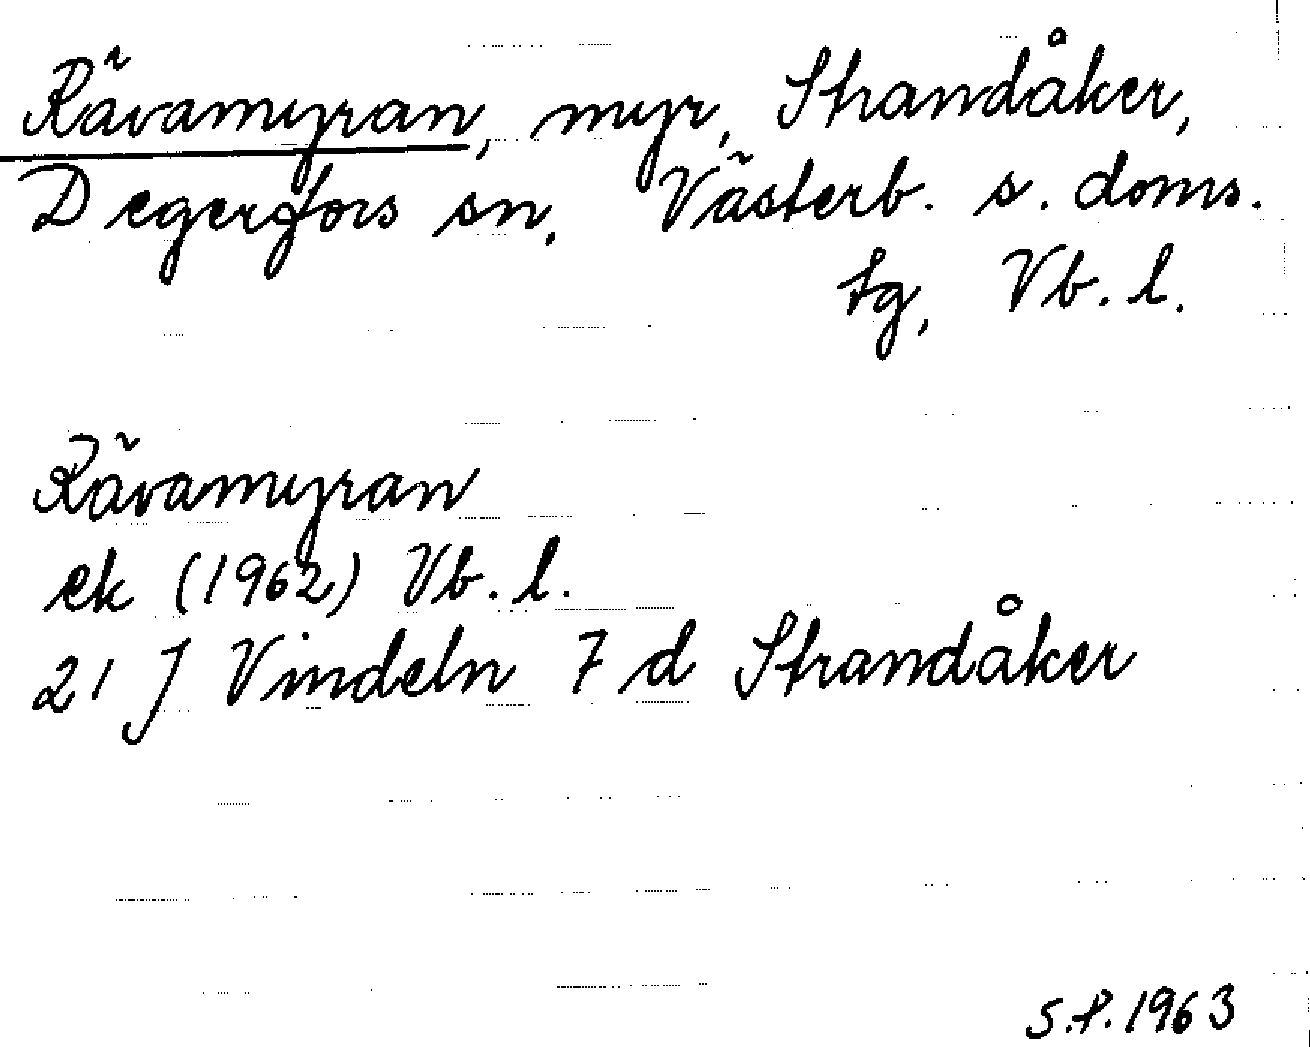 Rävamyran, myr, Strandåker,
Degerfors sn, Västerb. s. doms.
tg, Vb. l.
Rävamyran
ek (1962) Vb. l.
21 J Vindeln 7 d Strandåker
S.P. 1963